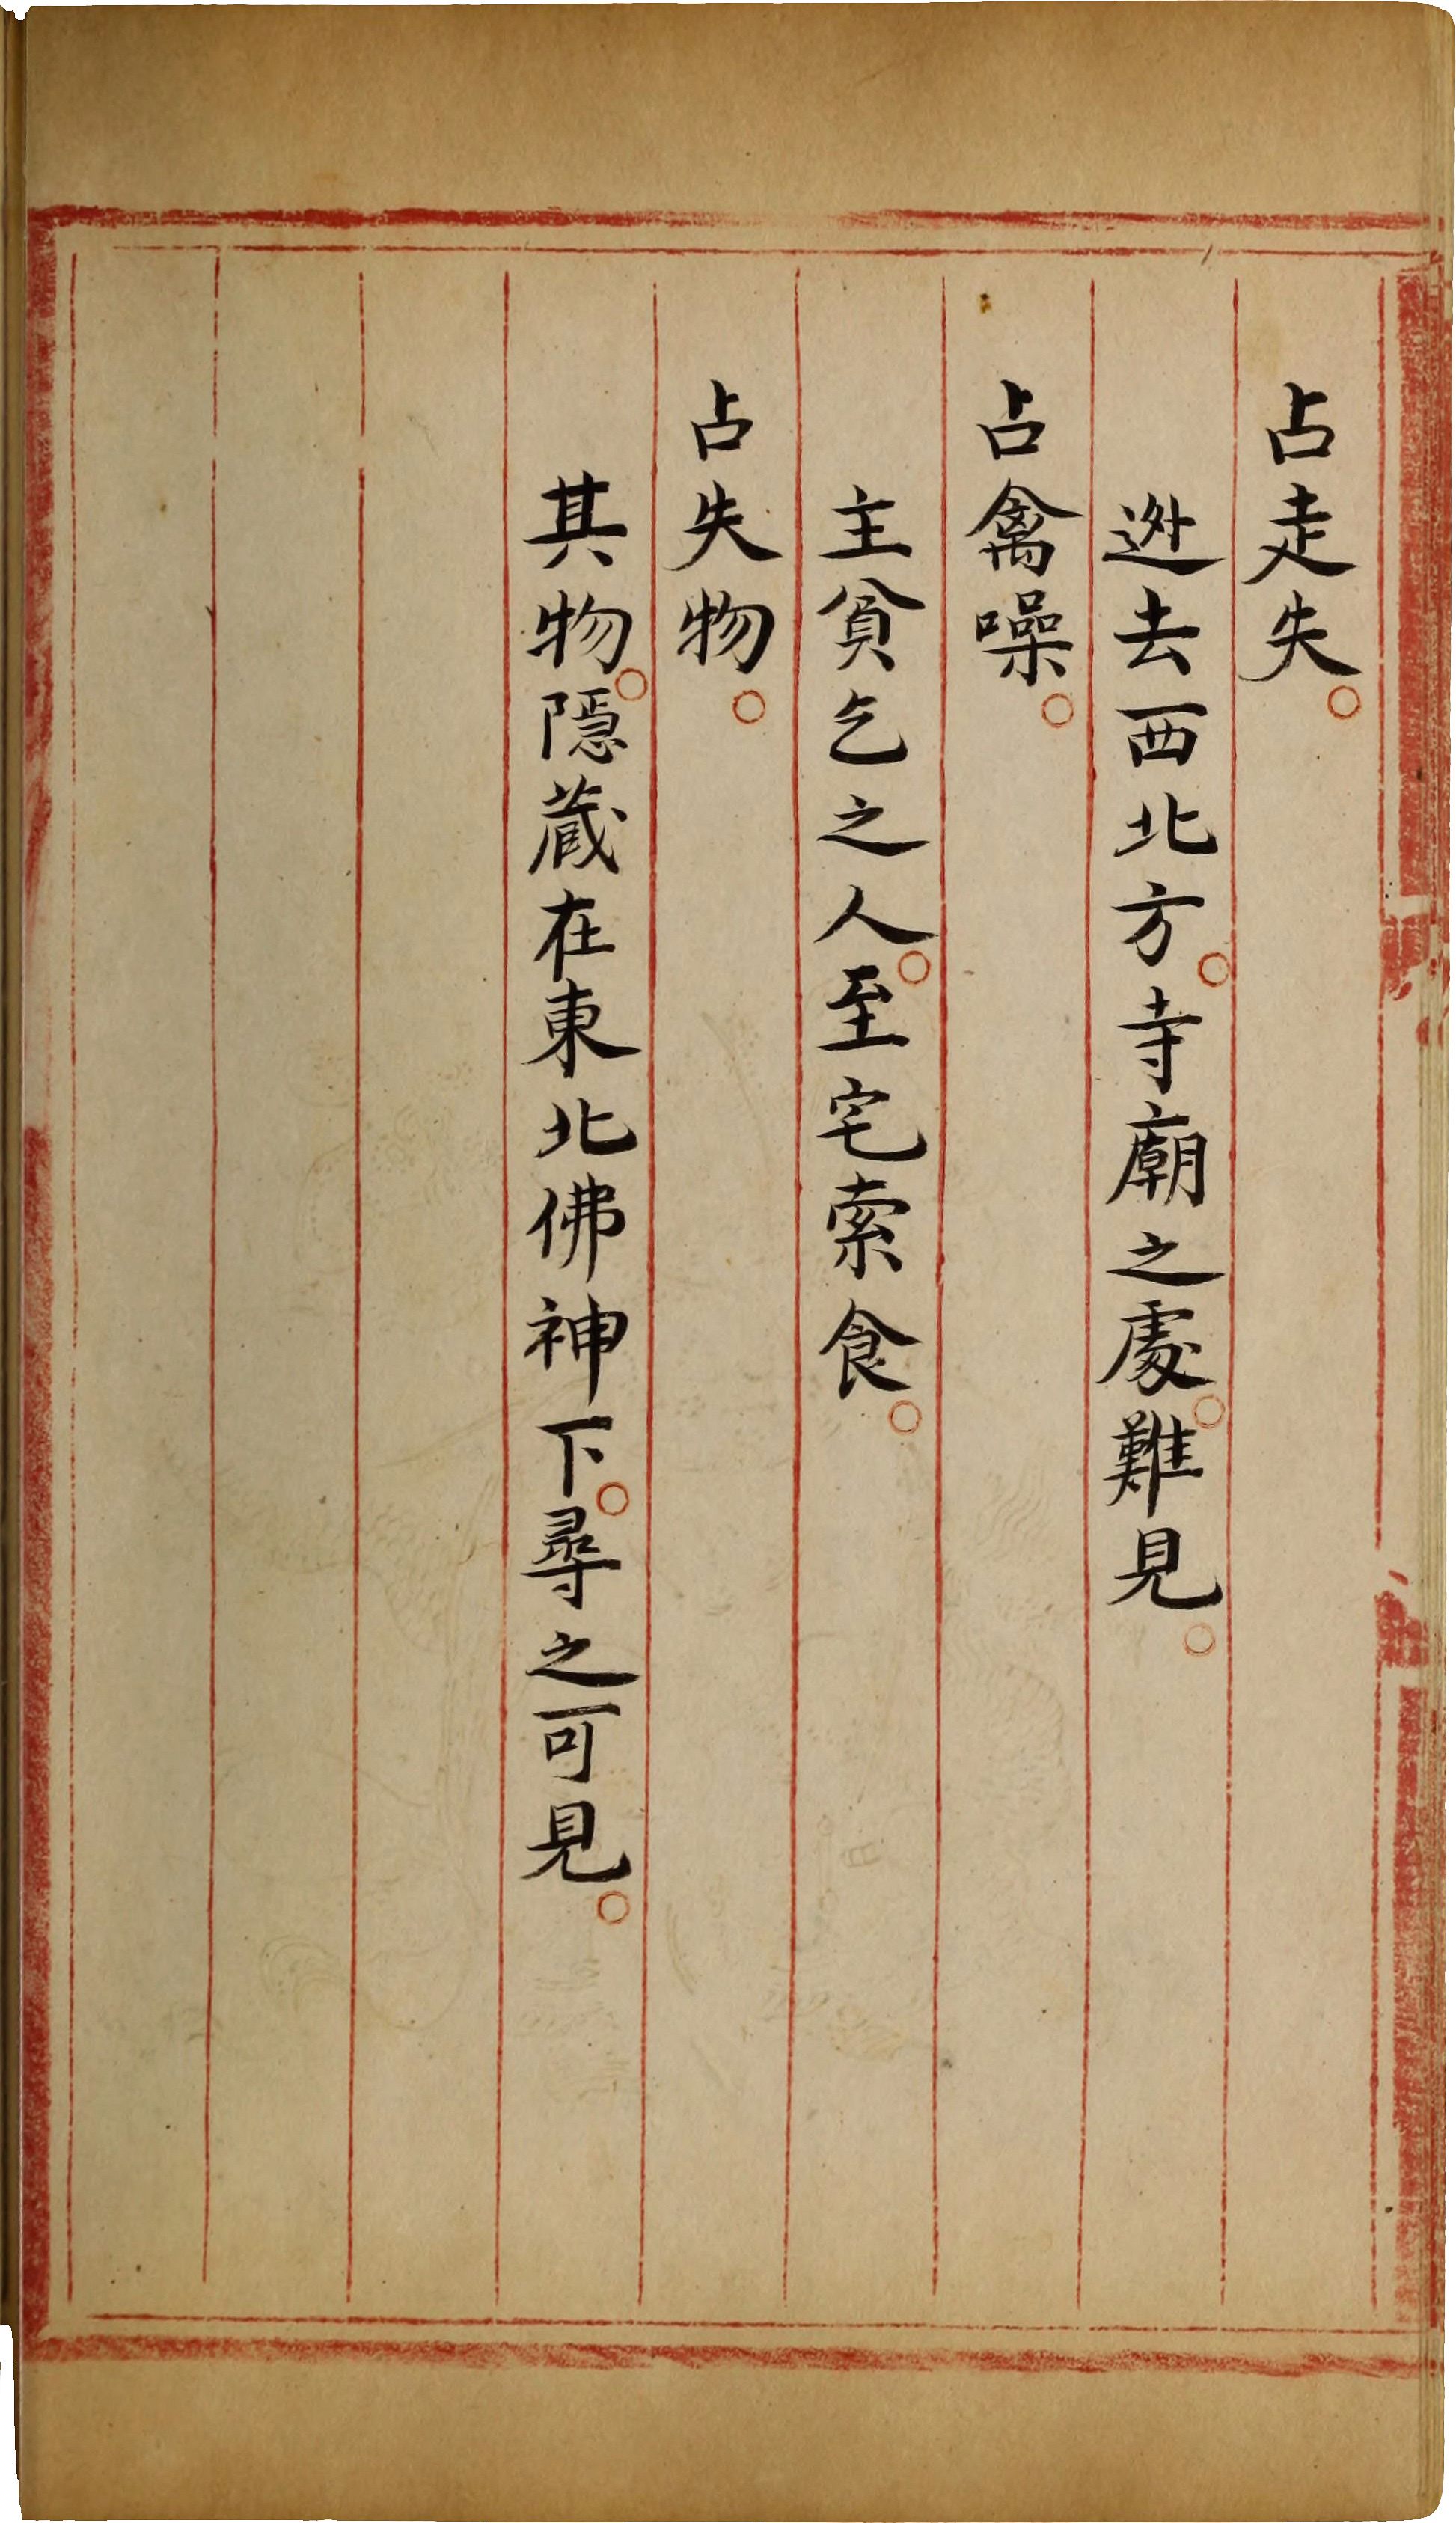 占走失。
迯去西北方。寺廟之處。難見。
占禽噪。
主貧乞之人。至宅索食。
占失物。
其物。隱藏在東北佛神下。尋之可見。